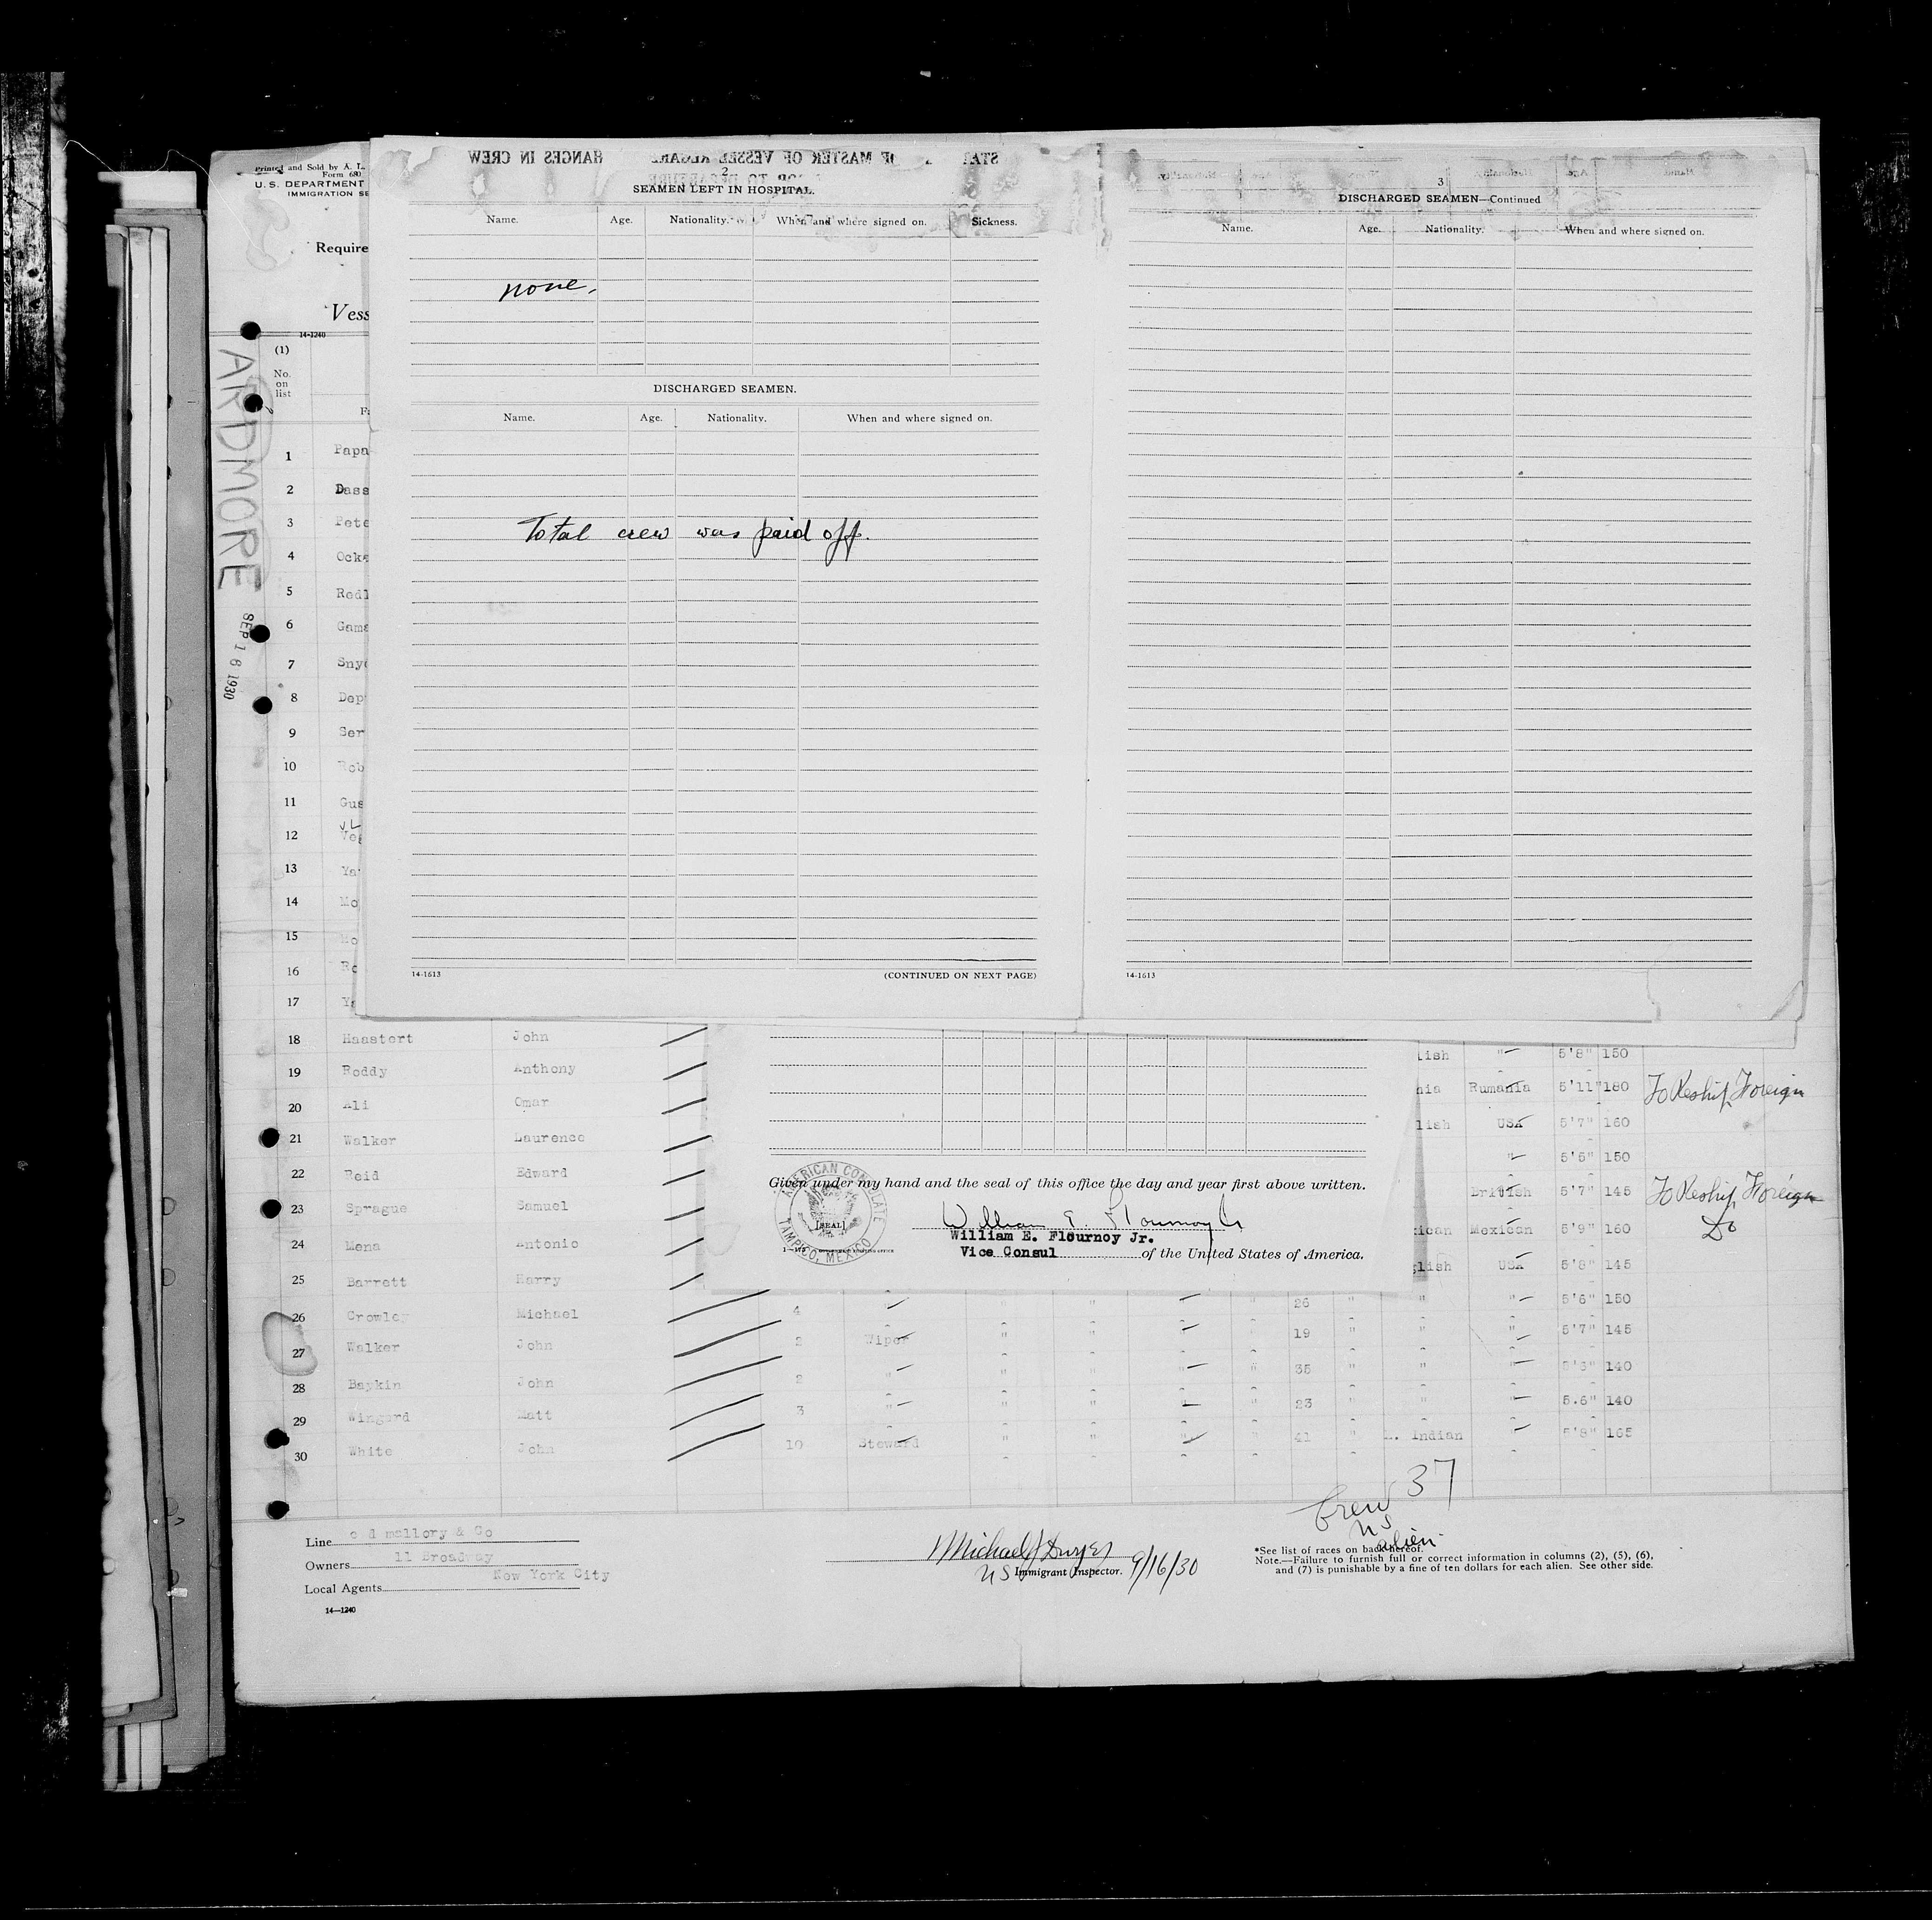 Printed and Sold by A. L.
Form 680
U. S. DEPARTMENT
IMMIGRATION SE
Require
Vess
14-1240
(1)
No.
on
list
ARDMORE
SEP 16 1930
2
SEAMEN LEFT IN HOSPITAL.
Name. Age. Nationality. When and where signed on. Sickness.
none.
DISCHARGED SEAMEN.
Name. Age. Nationality. When and where signed on.
Total crew was paid off.
14-1613 (CONTINUED ON NEXT PAGE)
3
DISCHARGED SEAMEN—Continued
Name. Age. Nationality. When and where signed on.
14-1613
1 Papa
2 Dass
3 Pete
4 Ock
5 Redl
6 Gams
7 Sny
8 Dep
9 Ser
10 Rob
11 Gus
12
13 Ya
14 Mo
15 Mo
16 Ro
17 Y
18 Haastert John lish " 5'8" 150
19 Roddy Anthony nia Rumania 5'11" 180 To Reship Foreign
20 Ali Omar lish USA 5'7" 160
21 Walker Laurence " 5'5" 150
22 Reid Edward British 5'7" 145 To Reship Foreign
23 Sprague Samuel ican Mexican 5'9" 160 Do
24 Mena Antonio glish USA 5'8" 145
25 Barrett Harry " " 5'6" 150
26 Crowley Michael 4 " " " " " 26 " " " 5'7" 145
27 Walker John 2 Wiper " " " " 19 " " " 5'3" 140
28 Baykin John 2 " " " " " 35 " " " 5.6" 140
29 Wingard Matt 3 " " " " " 23 " " "
30 White John 10 Steward " " " " 41 " Indian " 5'8" 165
Given under my hand and the seal of this office the day and year first above written.
AMERICAN CONSULATE
TAMPICO, MEXICO
[SEAL]
William E. Flournoy Jr
William E. Flournoy Jr.
Vice Consul of the United States of America.
Crew 37
US
alien
Line c d mallory & Co
Owners 11 Broadway
New York City
Local Agents
14—1240
Michael J Dwyer
US Immigrant Inspector. 9/16/30
*See list of races on back hereof.
Note.—Failure to furnish full or correct information in columns (2), (5), (6),
and (7) is punishable by a fine of ten dollars for each alien. See other side.